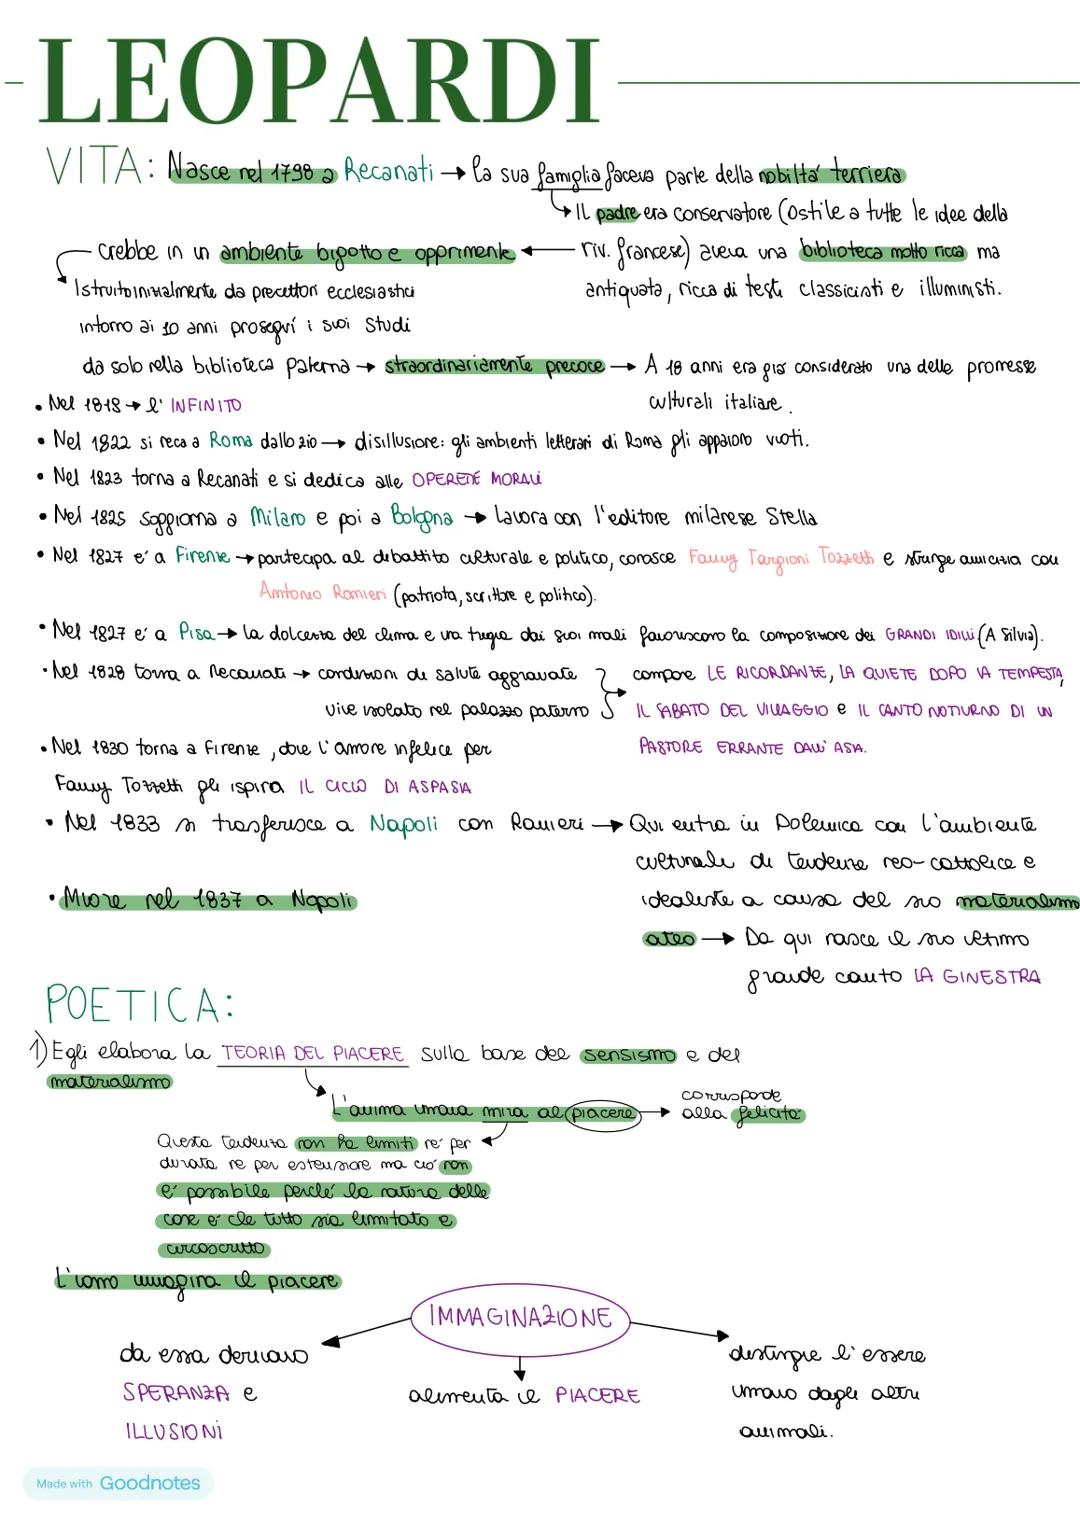 LEOPARDI
VITA: Nasce nel 1798 a Recanati → la sua famiglia faceva parte della nobiltà terriera
↳ Il padre era conservatore (ostile a tutte le idee della
crebbe in un ambiente bigotto e opprimente ← riv. francese) aveva una biblioteca molto ricca ma
Istruito inizialmente da precettori ecclesiastici
antiquata, ricca di testi classicisti e illuministi.
intorno ai 10 anni proseguí i suoi studi
da solo nella biblioteca paterna → straordinariamente precoce → A 18 anni era già considerato una delle promesse
culturali italiane.
• Nel 1818 → l'INFINITO
• Nel 1822 si reca a Roma dallo zio → disillusione: gli ambienti letterari di Roma gli appaiono vuoti.
• Nel 1823 torna a Recanati e si dedica alle OPERETTE MORALI
• Nel 1825 soggiorna a Milano e poi a Bologna → Lavora con l'editore milanese Stella
• Nel 1827 e' a Firenze → partecipa al dibattito culturale e politico, conosce Fanny Targioni Tozzetti e stringe amicizia con
Antonio Ranieri (patriota, scrittore e politico).
• Nel 1827 e' a Pisa → la dolcezza del clima e una tregua dai suoi mali favoriscono la composizione dei GRANDI IDILLI (A Silvia).
• Nel 1828 torna a Recanati → condizioni di salute aggravate
vive isolato nel palazzo paterno
compone LE RICORDANZE, LA QUIETE DOPO LA TEMPESTA,
IL SABATO DEL VILLAGGIO e IL CANTO NOTTURNO DI UN
PASTORE ERRANTE DALL'ASIA.
• Nel 1830 torna a Firenze, dove l'amore infelice per
Fanny Tozzetti gli ispira IL CICLO DI ASPASIA
• Nel 1833 si trasferisce a Napoli con Ranieri → Qui entra in Polemica con l'ambiente
culturale di tendenze neo-cattolice e
idealiste a causa del suo materialismo
ateo → Da qui nasce il suo ultimo
grande canto LA GINESTRA
• Muore nel 1837 a Napoli
POETICA:
1) Egli elabora la TEORIA DEL PIACERE sulla base del sensismo e del
materialismo
L'anima umana mira al piacere → corrisponde
alla felicità
Questa tendenza non ha limiti ne' per
durata ne per estensione ma ciò non
e' possibile perché la natura delle
cose e' che tutto sia limitato e
circoscritto
L'uomo immagina il piacere
IMMAGINAZIONE
da essa derivano
SPERANZA e
ILLUSIONI
alimenta il PIACERE
distingue l'essere
umano dagli altri
animali.
Made with Goodnotes